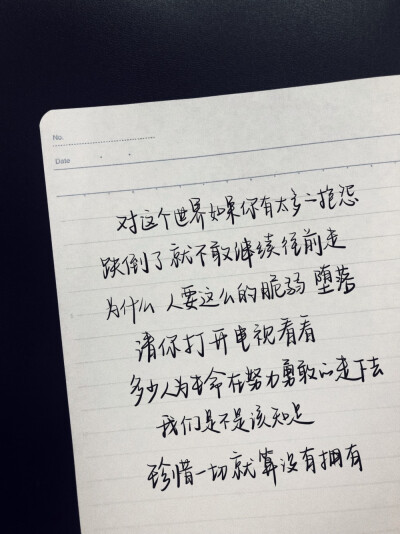 No.
Date
对这个世界如果你有太多的抱怨
跌倒了就不敢继续往前走
为什么 人要这么的脆弱 堕落
请你打开电视看看
多少人为生命在努力勇敢的走下去
我们是不是该知足
珍惜一切就算没有拥有